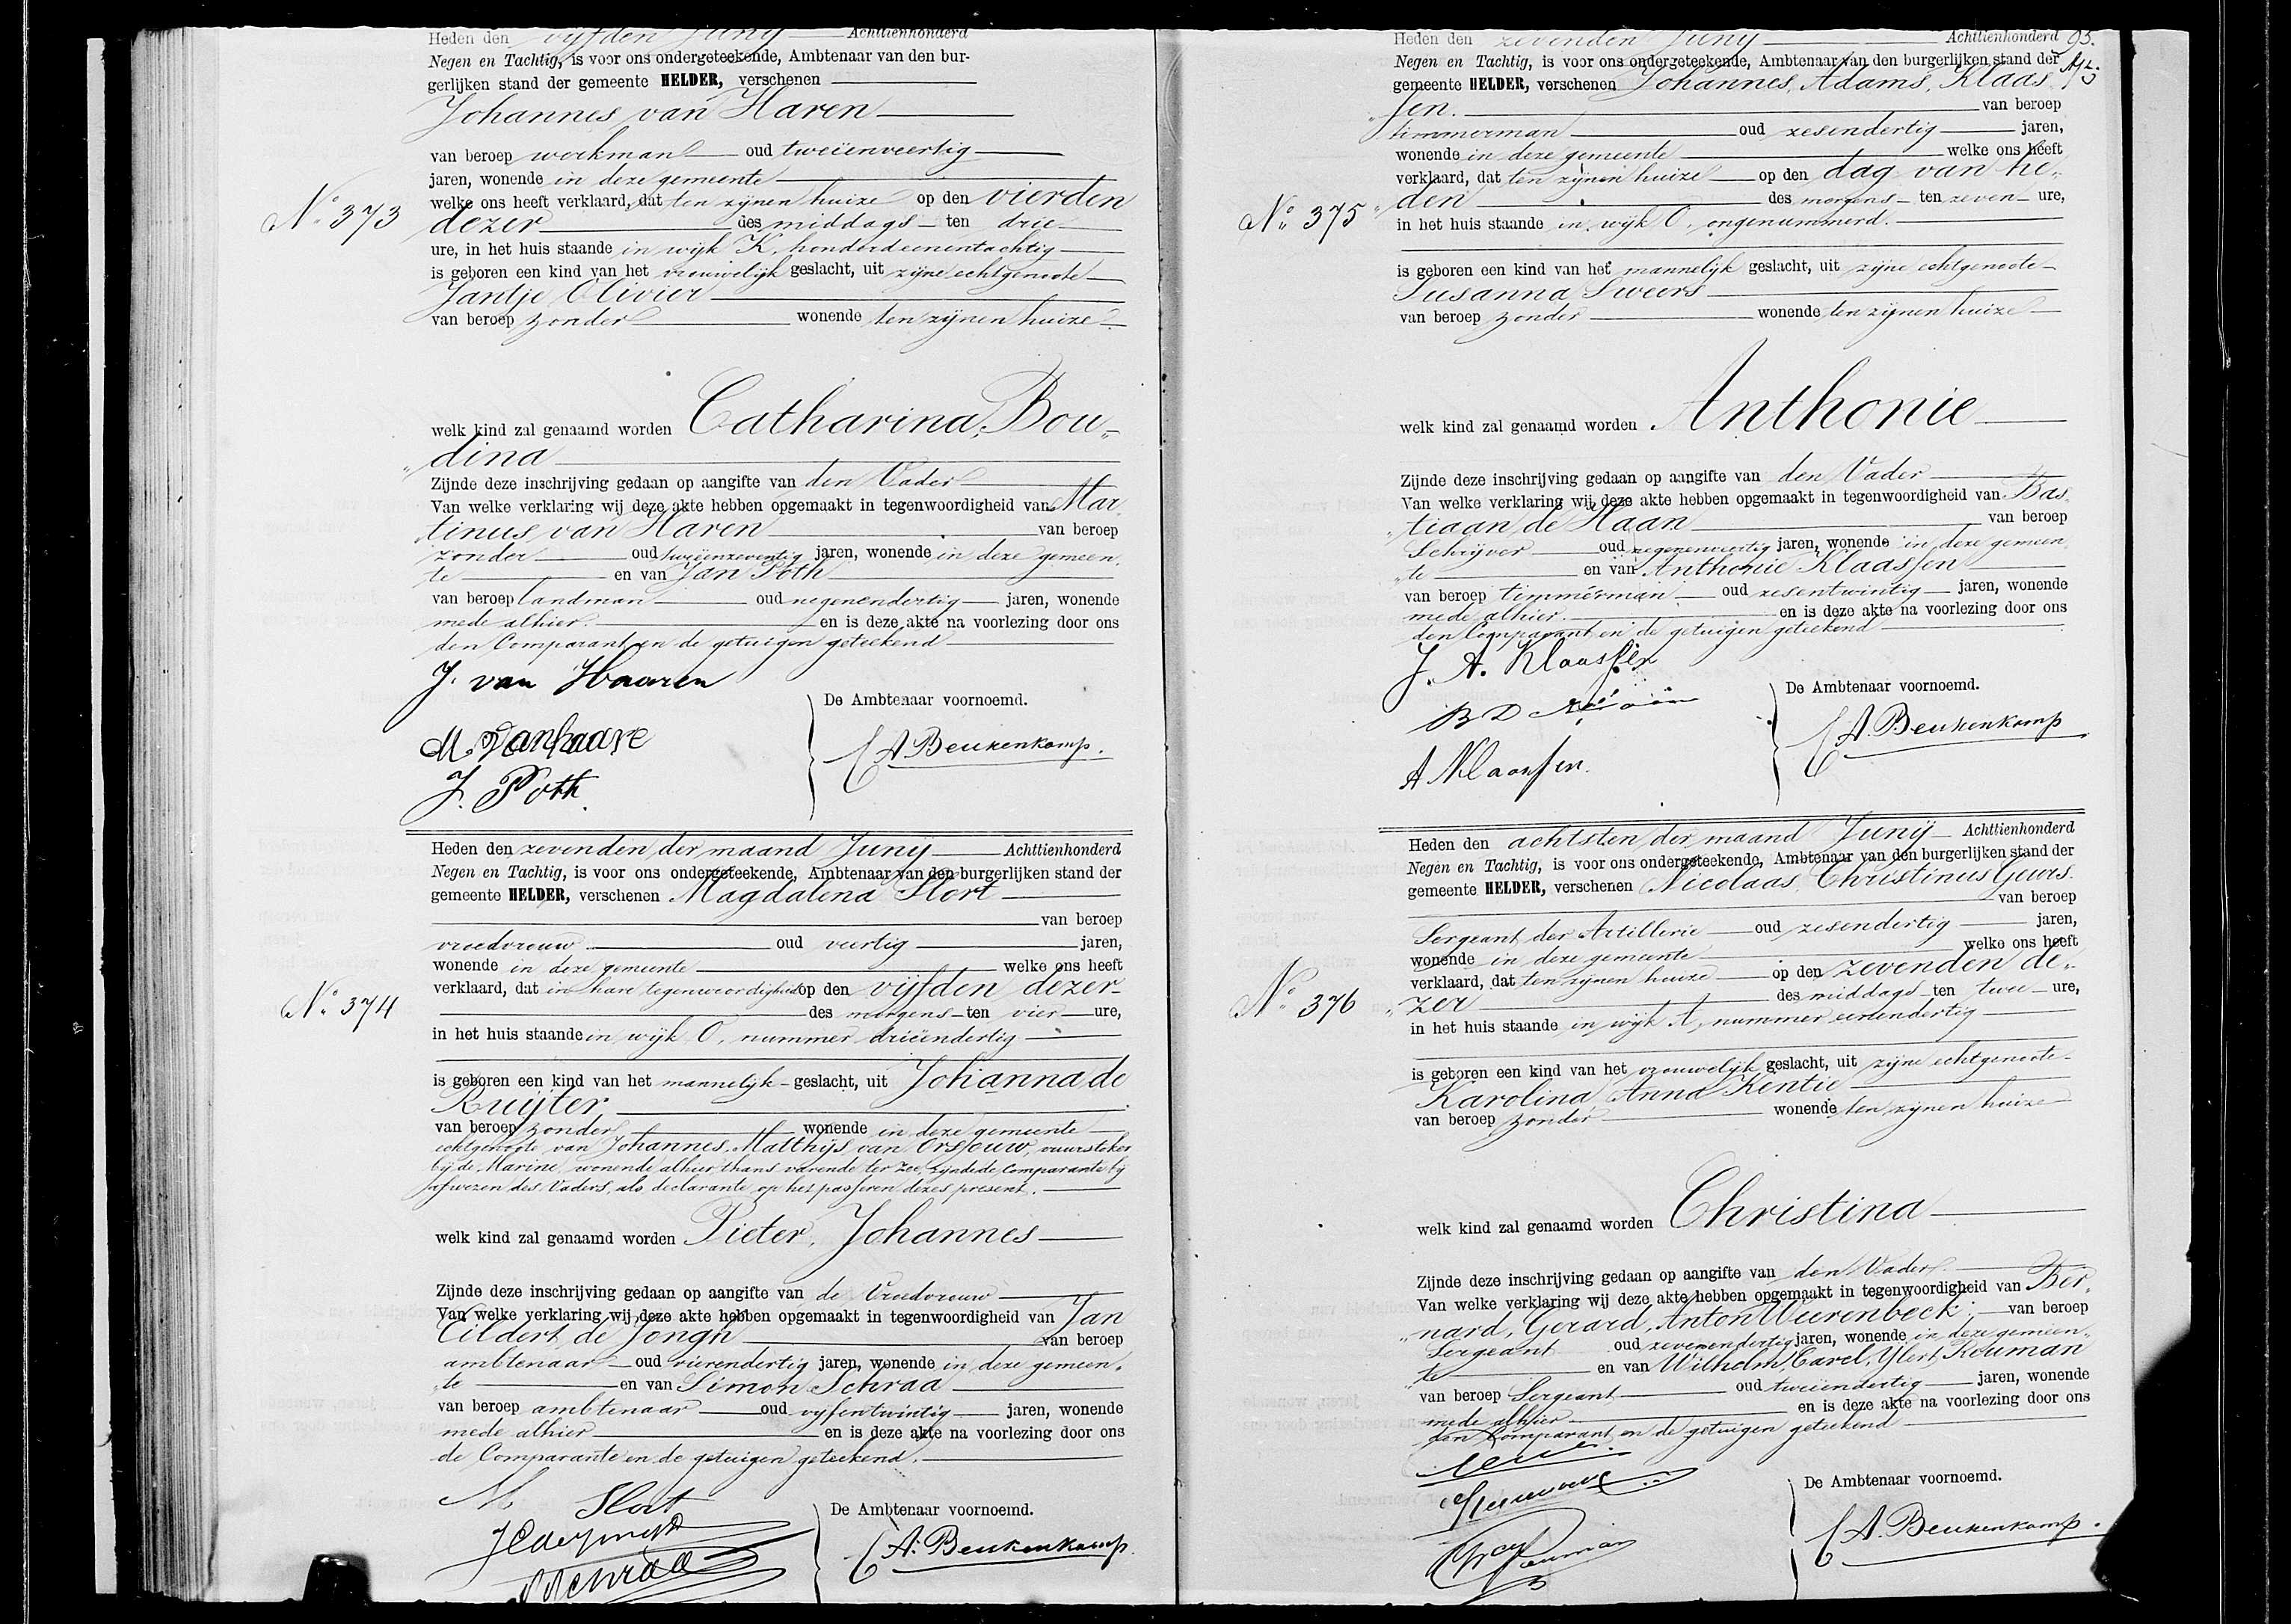 Heden den vijfden Junij Achttienhonderd
Negen en Tachtig, is voor ons ondergeteekende, Ambtenaar van den bur-
gerlijken stand der gemeente HELDER, verschenen
Johannes van Haren
van beroep werkman oud tweeënveertig
jaren, wonende in deze gemeente
welke ons heeft verklaard, dat ten zijnen huize op den vierden
No. 373 dezer des middags ten drie
ure, in het huis staande in wijk K, honderdeenentachtig
is geboren een kind van het vrouwelijk geslacht, uit zijne echtgenoote
Jantje Olivier
van beroep zonder wonende ten zijnen huize
welk kind zal genaamd worden Catharina, Bou„
„dina
Zijnde deze inschrijving gedaan op aangifte van den Vader
Van welke verklaring wij deze akte hebben opgemaakt in tegenwoordigheid van Mar„
tinus van Haren van beroep
zonder oud tweeënzeventig jaren, wonende in deze gemeen„
„te en van Jan Poth
van beroep landman oud negenendertig jaren, wonende
mede alhier. en is deze akte na voorlezing door ons
den Comparant en de getuigen geteekend
J. van Haaren
De Ambtenaar voornoemd.
M. Vanhaare
A. Beukenkamp.
J. Poth.
Heden den zevenden der maand Junij Achttienhonderd
Negen en Tachtig, is voor ons ondergeteekende, Ambtenaar van den burgerlijken stand der
gemeente HELDER, verschenen Magdalena Slort
van beroep
vroedvrouw oud veertig jaren,
wonende in deze gemeente welke ons heeft
verklaard, dat in hare tegenwoordigheid op den vijfden dezer
No. 374 des morgens ten vier ure,
in het huis staande in wijk O, nummer drieëndertig
is geboren een kind van het mannelijk geslacht, uit Johanna de
Ruijter
van beroep zonder wonende in deze gemeente
echtgenoote van Johannes, Matthijs van Orsouw, vuurstoker
bij de Marine, wonende alhier, thans varende ter zee, zijnde de Comparante bij
afwezen des Vaders, als declarante op het passeren dezes present.
welk kind zal genaamd worden Pieter, Johannes
Zijnde deze inschrijving gedaan op aangifte van de Vroedvrouw
Van welke verklaring wij deze akte hebben opgemaakt in tegenwoordigheid van Jan
Eildert de Jongh van beroep
ambtenaar oud vierendertig jaren, wonende in deze gemeen„
„te en van Simon Schraa
van beroep ambtenaar oud vijfentwintig jaren, wonende
mede alhier en is deze akte na voorlezing door ons
de Comparante en de getuigen geteekend.
M Slort
De Ambtenaar voornoemd.
A. Beukenkamp.
Schraa
Heden den zevenden Junij Achttienhonderd 95.
Negen en Tachtig, is voor ons ondergeteekende, Ambtenaar van den burgerlijken stand der
gemeente HELDER, verschenen Johannes, Adams, Klaas
„sen. van beroep
timmerman oud zesendertig jaren,
wonende in deze gemeente welke ons heeft
verklaard, dat ten zijnen huize op den dag van he„
No. 375 „den des morgens ten zeven ure,
in het huis staande in wijk O, ongenummerd.
is geboren een kind van het mannelijk geslacht, uit zijne echtgenoote
Susanna Sweers
van beroep zonder wonende ten zijnen huize
welk kind zal genaamd worden Anthonie
Zijnde deze inschrijving gedaan op aangifte van den Vader
Van welke verklaring wij deze akte hebben opgemaakt in tegenwoordigheid van Bas„
„tiaan de Haan van beroep
Schrijver oud negenenveertig jaren, wonende in deze gemeen„
„te en van Anthonie Klaassen
van beroep timmerman oud zesentwintig jaren, wonende
mede alhier. en is deze akte na voorlezing door ons
den Comparant en de getuigen geteekend
J. A. Klaassen
De Ambtenaar voornoemd.
B D Haan
A. Beukenkamp
A Klaassen.
Heden den achtsten der maand Junij Achttienhonderd
Negen en Tachtig, is voor ons ondergeteekende, Ambtenaar van den burgerlijken stand der
gemeente HELDER, verschenen Nicolaas, Christinus Geurs.
van beroep
Sergeant der Artillerie oud zesendertig jaren,
wonende in deze gemeente welke ons heeft
verklaard, dat ten zijnen huize op den zevenden de„
No. 376 „zer des middags ten twee ure,
in het huis staande in wijk A, nummer eenendertig
is geboren een kind van het vrouwelijk geslacht, uit zijne echtgenoote
Karolina Anna Kentie
van beroep zonder wonende ten zijnen huize
welk kind zal genaamd worden Christina
Zijnde deze inschrijving gedaan op aangifte van den Vader
Van welke verklaring wij deze akte hebben opgemaakt in tegenwoordigheid van Ber„
„nard, Gerard, Anton Weerenbeck; van beroep
Sergeant oud zevenendertig jaren, wonende in deze gemeen„
„te en van Wilhelm, Carel, Ylert, Keuman
van beroep Sergeant oud tweeëndertig jaren, wonende
mede alhier en is deze akte na voorlezing door ons
den Comparant en de getuigen geteekend
De Ambtenaar voornoemd.
A. Beukenkamp.